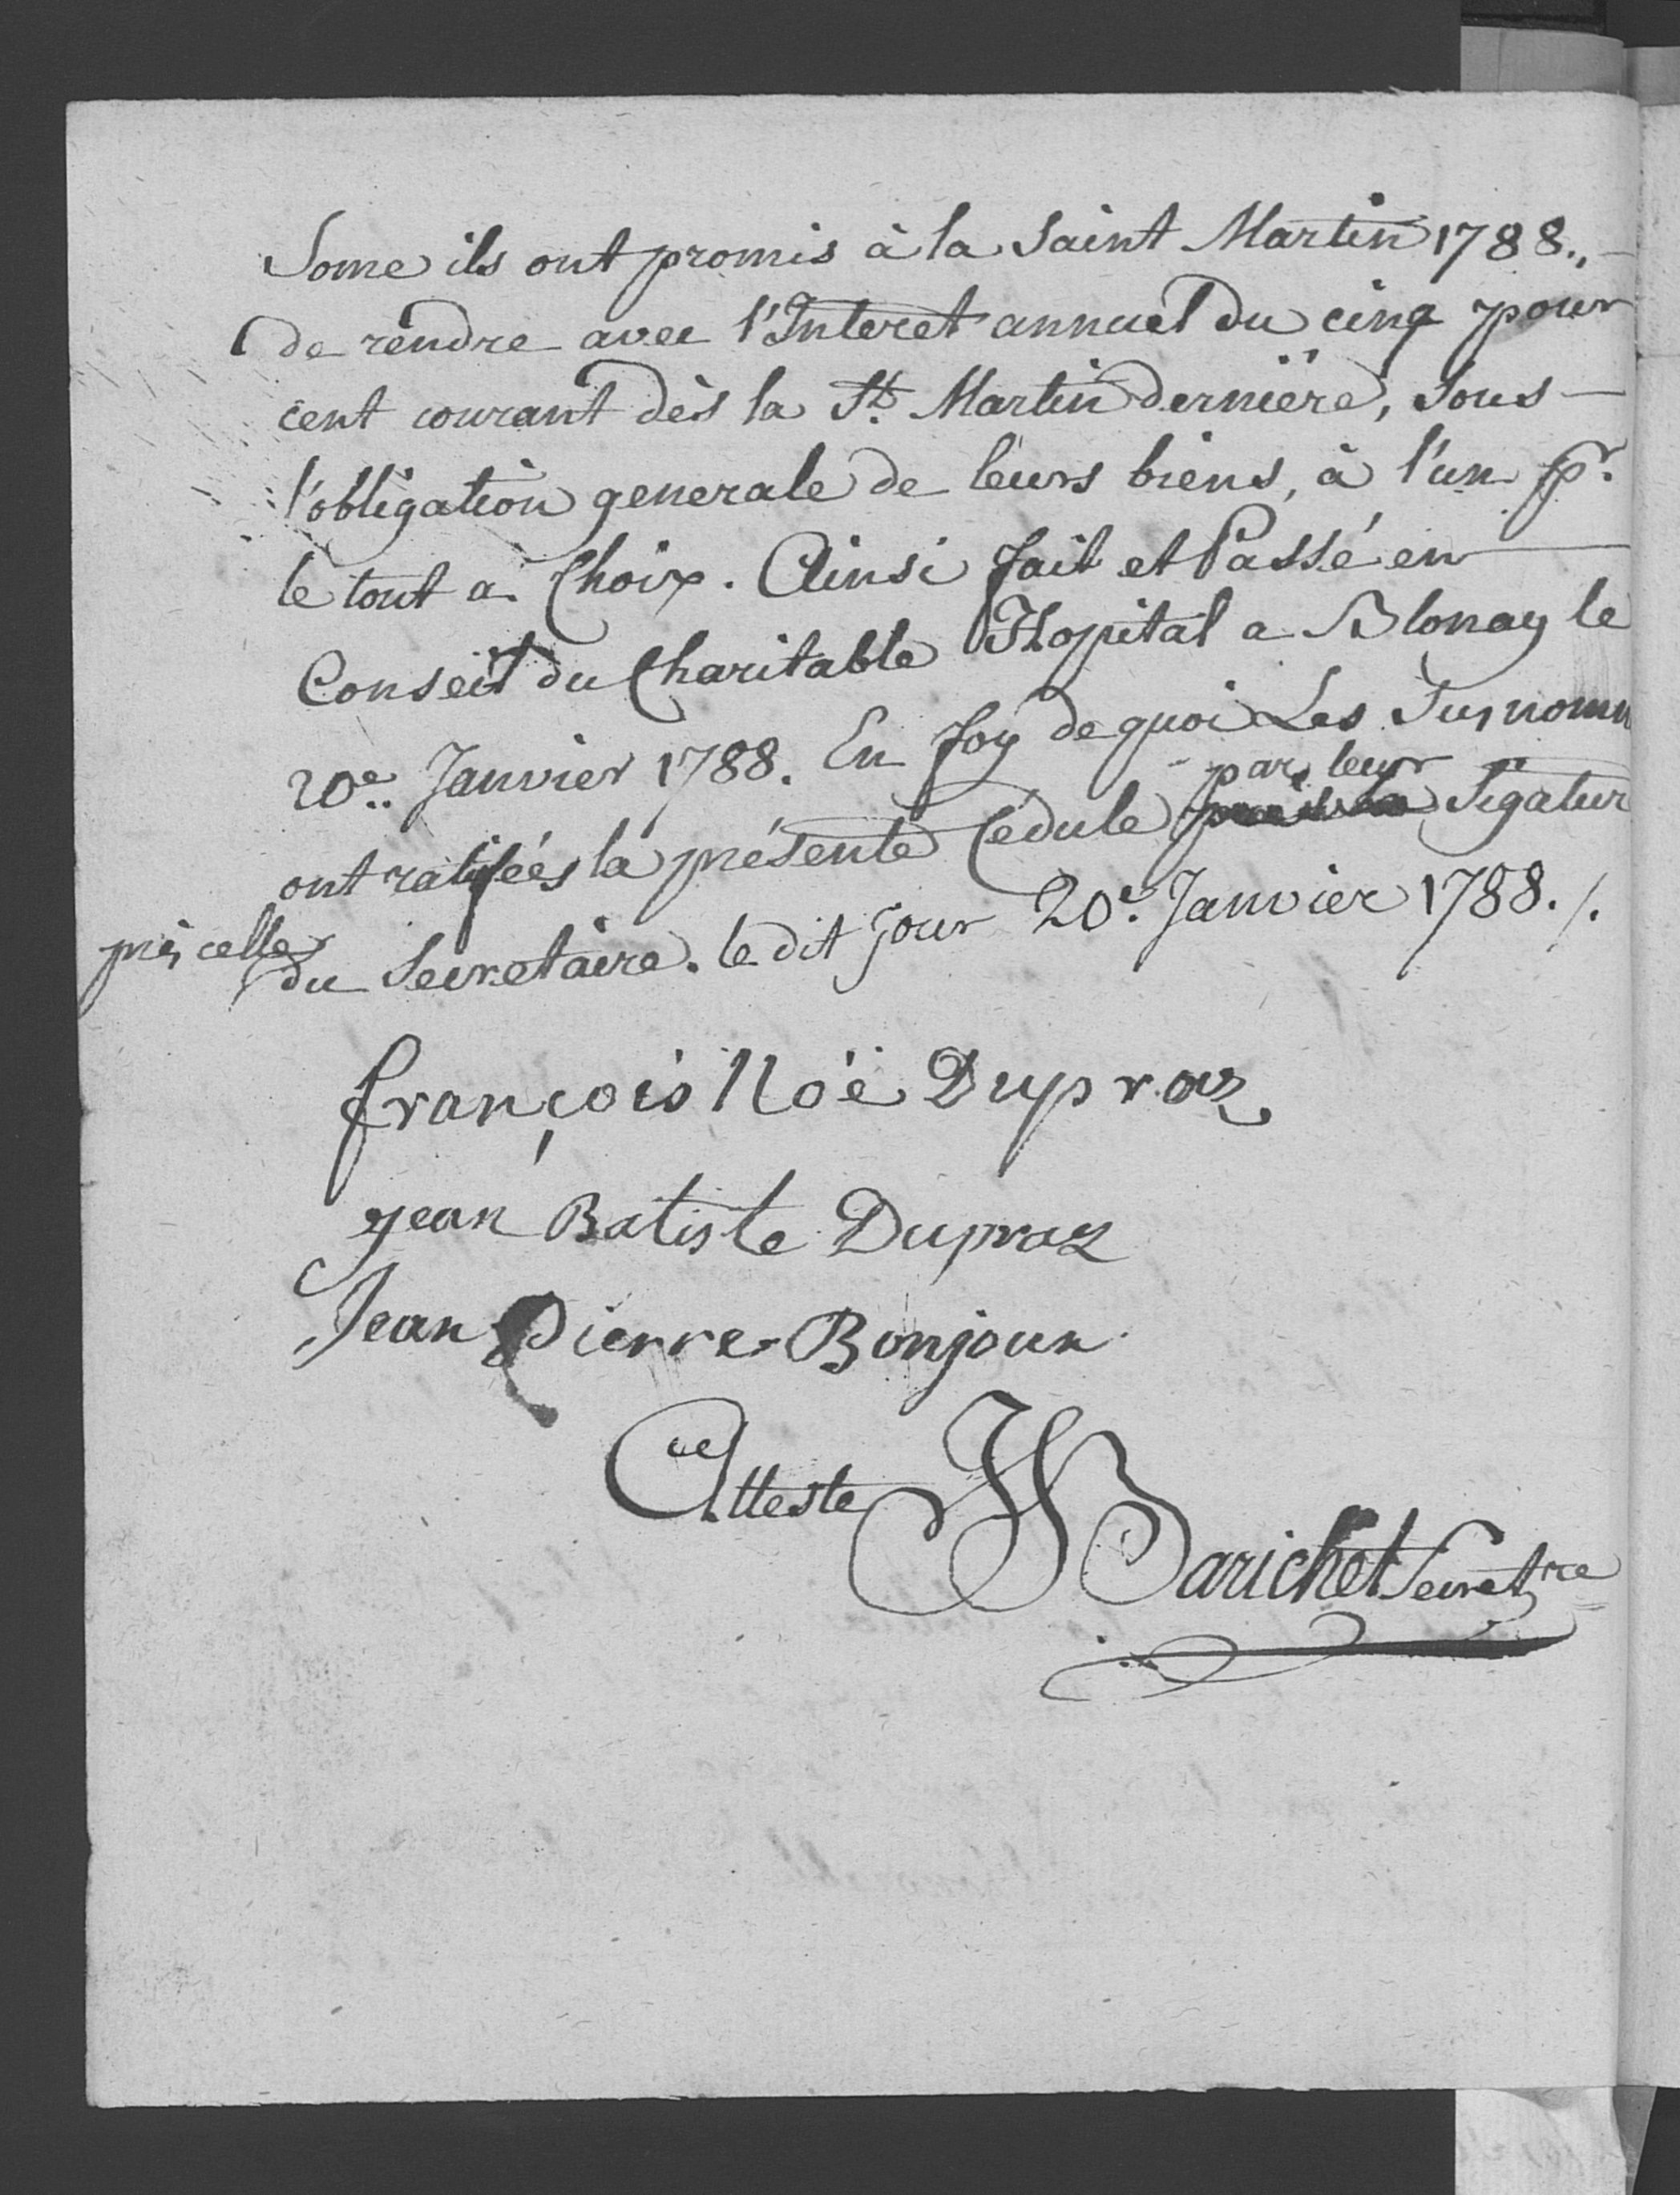 Some ils ont promis à la Saint Martin 1788.,
de rendre avec l'Interet annuel du cinq pour
cent courant dès la St. Martin dernière, sous
l'obligation generale de leurs biens, à l'un pr.
le tout a Choix. Ainsi fait et Passé en
Conseil du Charitable Hopital a Blonay le
20e. Janvier 1788. En foy de quoi Les Susnomm
par leur
ont ratifées la présente Cédule Sigatur
près celle
du Secretaire. le dit jour 20e. Janvier 1788./.
françois Noé Dupraz
jean Batiste Dupraz
Jean Pierre Bonjour
Atteste Barichet Secretre